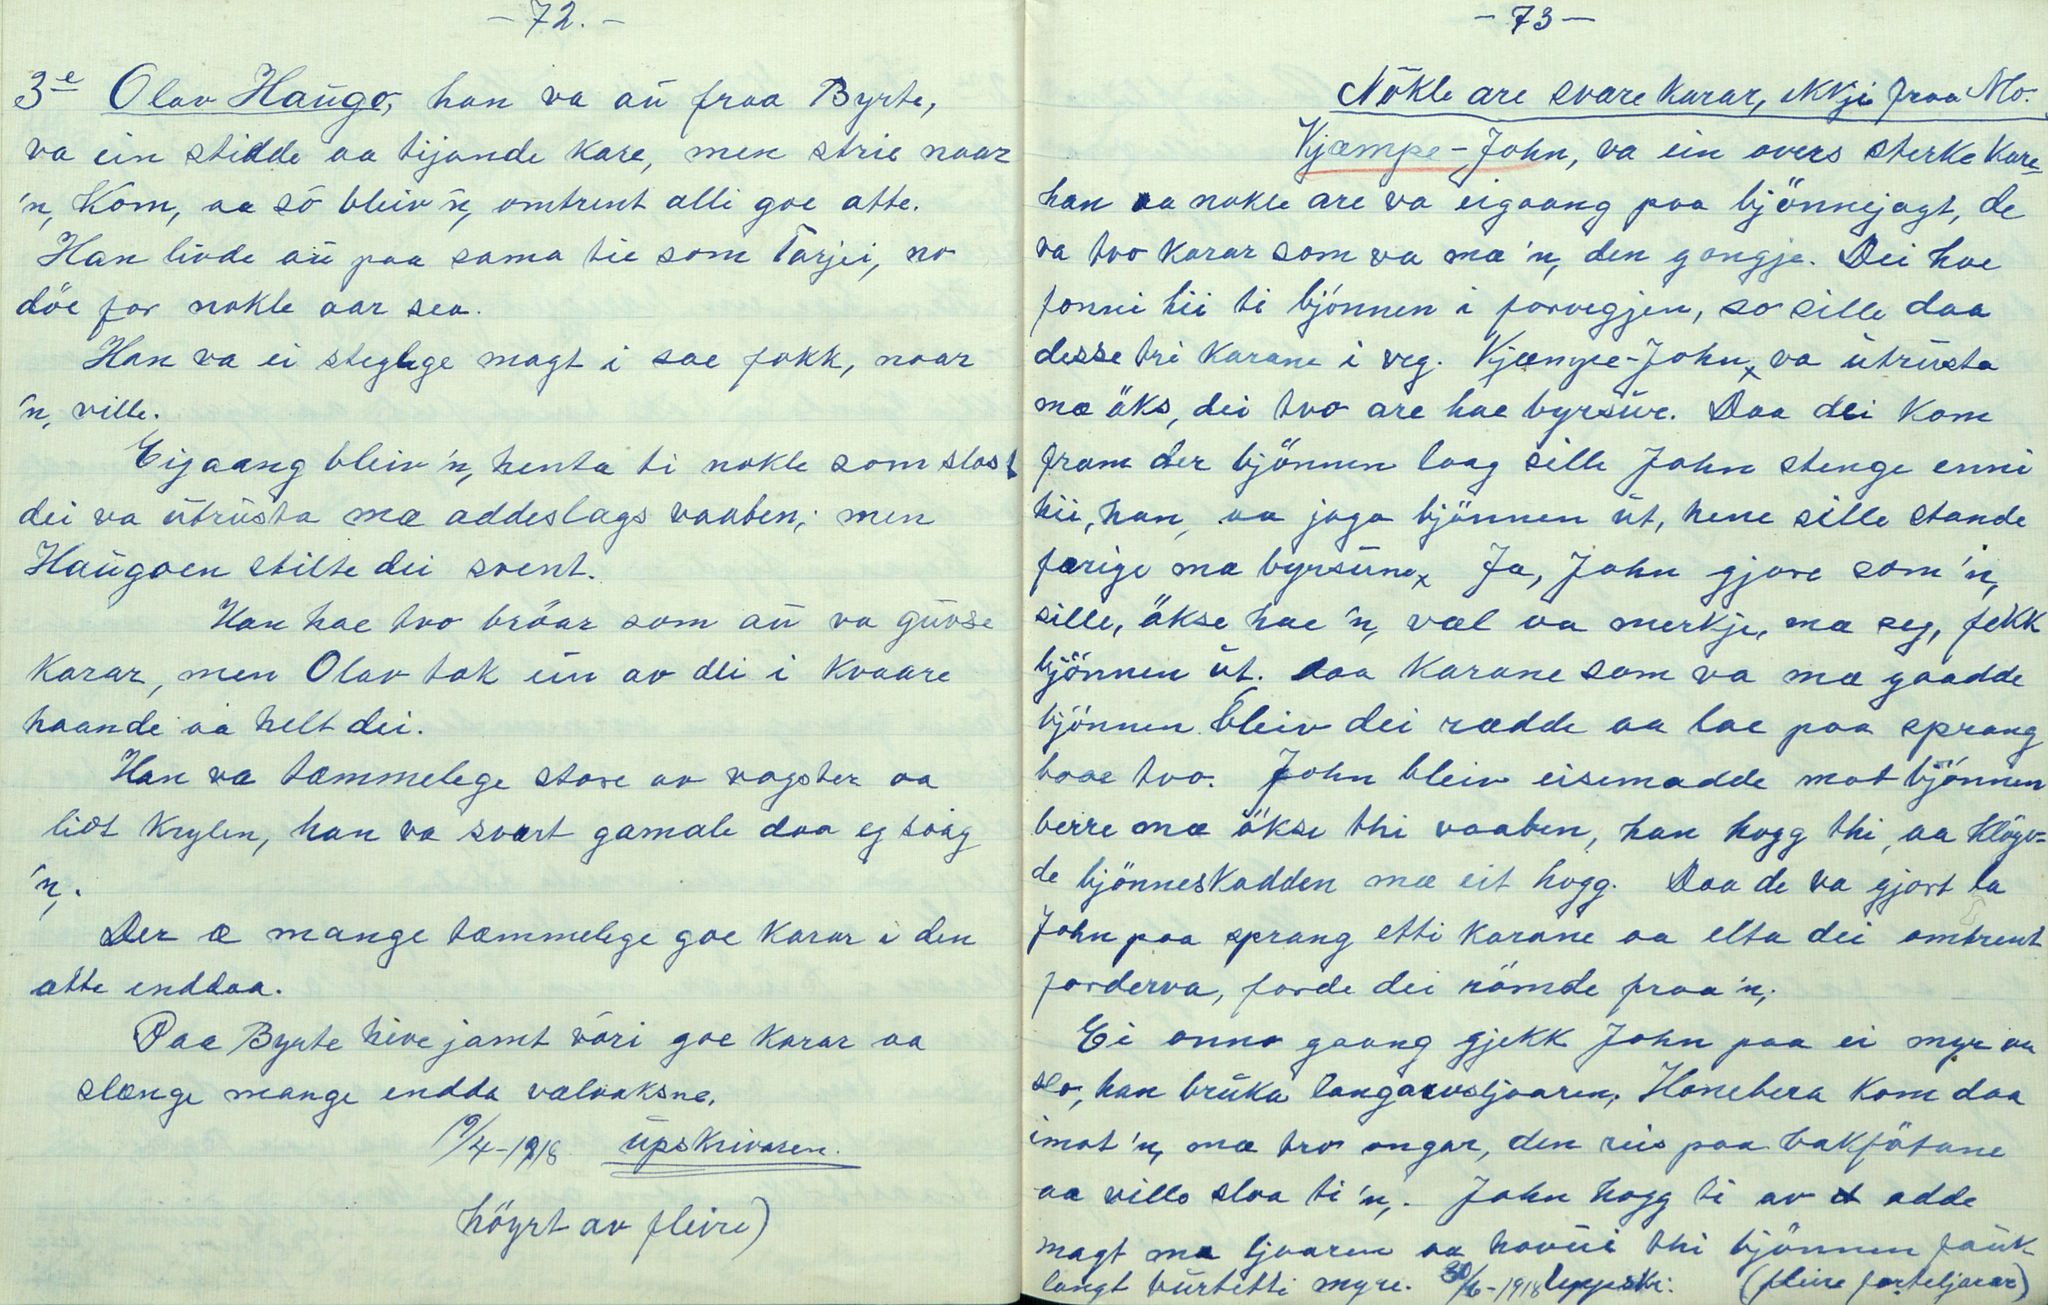 - 72. -
3e Olav Haugo, han va aū fraa Byrte,
va ein stidde aa tijande kare, men strie naar
'n, kom, aa sö bleiv 'n, omtrent alli goe atte.
Han livde aū paa sama tie som Tarjei, no
döe for nokle aar sea.
Han va ei steglege magt i sae fokk, naar
'n, ville.
Eigaang bleiv 'n, henta ti nokle som slost
dei va ūtrūsta mæ addeslags vaaben; men
Haūgoen stilte dei svent.
Han hae tvo bröar som aū va gūvse
karar, men Olav tok ein av dei i kvaare
haande aa helt dei.
Han va tæmmelege store av vagster aa
lidt krylen, han va svært gamale daa eg soåg
'n,.
Der æ mange tæmmelege goe karar i den
atte enddaa.
Paa Byrte heve jamt vöri goe karar aa
slænge mange endda vælvaksne.
9/4-1918 ūpskrivaren.
höyrt av fleire)
- 73 -
Nökle are svare karar, ikkje fraa Mo.
Kjæmpe-John, va ein overs sterke kare
han aa nokle are va eigaang paa bjönnejagt, de
va tvo karar som va mæ 'n, den gongje. Dei hae
fonni hii ti bjönnen i forvegjen, so sille daa
desse tri karane i veg. Kjæmpe-John, va ūtrūsta
mæ öks, dei tvo are hae byrsūr. Daa dei kom
fram der bjönnen laag sille John stenge enni
hii, han, aa jaga bjönnen ūt, hene sille stande
færige mæ byrsūne, Ja, John gjore som 'n,
sille, ökse hae 'n, væl aa merkje, mæ seg, fekk
bjönnen ūt. daa karane som va mæ gaadde
bjönnen bleiv dei rædde aa tae paa sprang
baae tvo. John bleiv eisemadde mot bjönnen
berre mæ ökse thi vaaben, han hogg thi, aa klöyv-
de bjönneskadden mæ eit hogg. Daa de va gjort ta
John paa sprang etti karane aa elta dei omtrent
forderva, forde dei römde fraa 'n,
Ei onno gaang gjekk John paa ei myr aa
slo, han brūka langarvsljaaren, Honebera kom daa
imot 'n, mæ tvo ongar, den reis paa bakfötane
aa ville slaa ti 'n,. John hogg ti av adde
magt mæ ljaaren aa hovūi thi bjönnen faūk
langt būrtetti myre. 30/6-1918 uppskr: (fleire forteljarar)